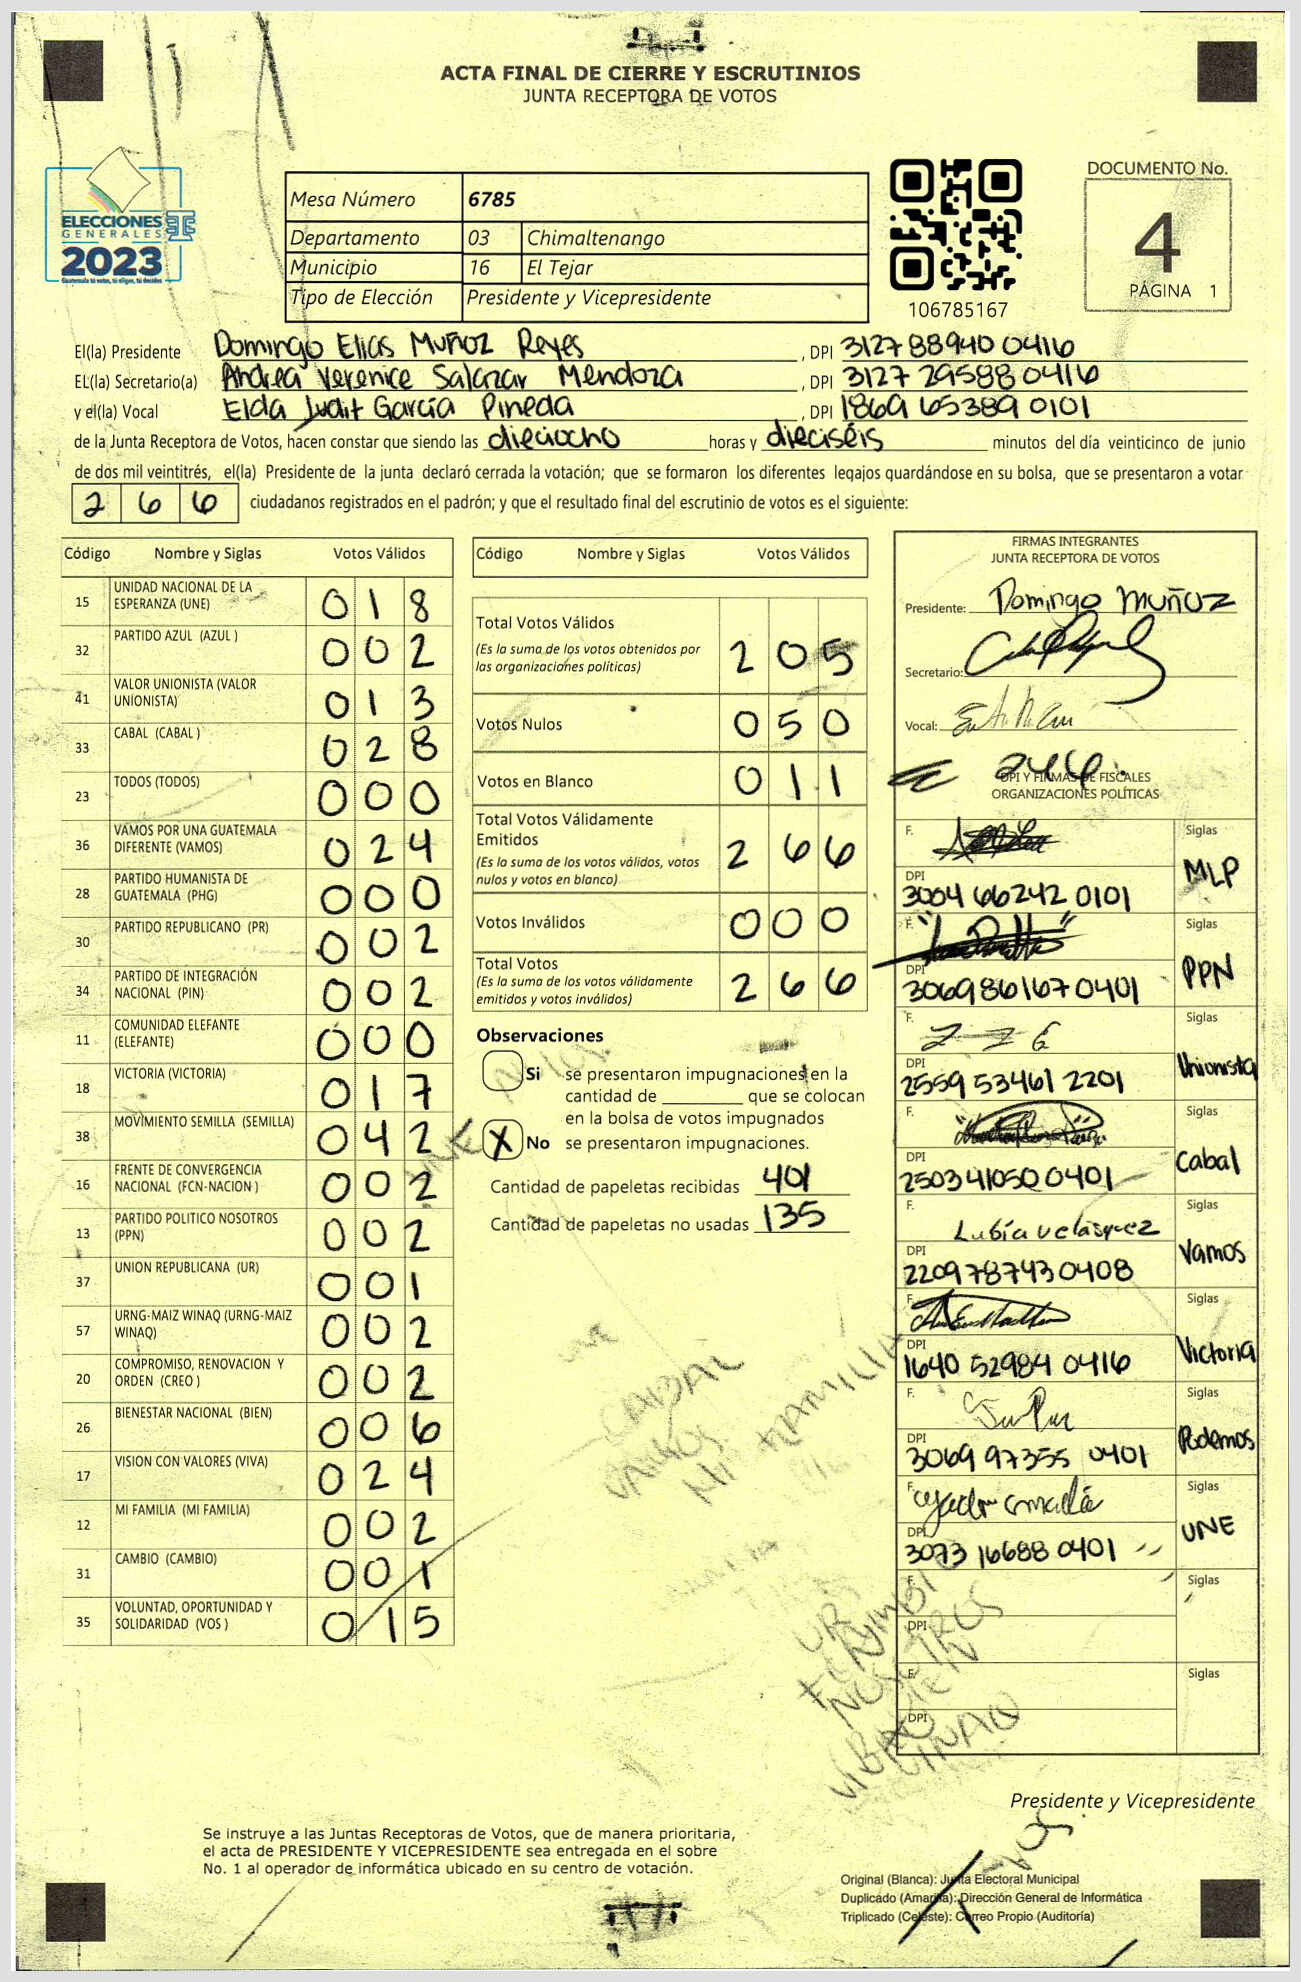 ACTA FINAL DE CIERRE Y ESCRUTINIOS
JUNTA RECEPTORA DE VOTOS
ELECCIONES
GENERALES
2023
Guatemala tú votas, tú eliges, tú decides
Mesa Número 6785
Departamento 03 Chimaltenango
Municipio 16 El Tejar
Tipo de Elección Presidente y Vicepresidente
106785167
DOCUMENTO No.
4
PÁGINA 1
El(la) Presidente Domingo Elias Muñoz Reyes , DPI 3127 88940 0416
EL(la) Secretario(a) Andrea Verenice Salazar Mendoza , DPI 3127 29588 0416
y el(la) Vocal Elda Judit García Pineda , DPI 1869 65389 0101
de la Junta Receptora de Votos, hacen constar que siendo las dieciocho horas y dieciséis minutos del día veinticinco de junio
de dos mil veintitrés, el(la) Presidente de la junta declaró cerrada la votación; que se formaron los diferentes legajos quardándose en su bolsa, que se presentaron a votar
266 ciudadanos registrados en el padrón; y que el resultado final del escrutinio de votos es el siguiente:
Código Nombre y Siglas Votos Válidos
15 UNIDAD NACIONAL DE LA ESPERANZA (UNE) 018
32 PARTIDO AZUL (AZUL ) 002
41 VALOR UNIONISTA (VALOR UNIONISTA) 013
33 CABAL (CABAL ) 028
23 TODOS (TODOS) 000
36 VAMOS POR UNA GUATEMALA DIFERENTE (VAMOS) 024
28 PARTIDO HUMANISTA DE GUATEMALA (PHG) 000
30 PARTIDO REPUBLICANO (PR) 002
34 PARTIDO DE INTEGRACIÓN NACIONAL (PIN) 002
11 COMUNIDAD ELEFANTE (ELEFANTE) 000
18 VICTORIA (VICTORIA) 017
38 MOVIMIENTO SEMILLA (SEMILLA) 042
16 FRENTE DE CONVERGENCIA NACIONAL (FCN-NACION ) 002
13 PARTIDO POLITICO NOSOTROS (PPN) 002
37 UNION REPUBLICANA (UR) 001
57 URNG-MAIZ WINAQ (URNG-MAIZ WINAQ) 002
20 COMPROMISO, RENOVACION Y ORDEN (CREO ) 002
26 BIENESTAR NACIONAL (BIEN) 006
17 VISION CON VALORES (VIVA) 024
12 MI FAMILIA (MI FAMILIA) 002
31 CAMBIO (CAMBIO) 001
35 VOLUNTAD, OPORTUNIDAD Y SOLIDARIDAD (VOS ) 015
Código Nombre y Siglas Votos Válidos
Total Votos Válidos 205
(Es la suma de los votos obtenidos por
las organizaciones políticas)
Votos Nulos 050
Votos en Blanco 011
Total Votos Válidamente
Emitidos 266
(Es la suma de los votos válidos, votos
nulos y votos en blanco)
Votos Inválidos 000
Total Votos 266
(Es la suma de los votos válidamente
emitidos y votos inválidos)
Observaciones
Si se presentaron impugnaciones en la
cantidad de ________ que se colocan
en la bolsa de votos impugnados
X No se presentaron impugnaciones.
Cantidad de papeletas recibidas 401
Cantidad de papeletas no usadas 135
UNE
CABAL
VAMOS
MI FAMILIA
UR
NOSOTROS
BIEN
WINAQ
FIRMAS INTEGRANTES
JUNTA RECEPTORA DE VOTOS
Presidente: Domingo Muñoz
Secretario:
Vocal:
DPI Y FIRMAS DE FISCALES
ORGANIZACIONES POLÍTICAS
F. Siglas
MLP
DPI
3004 66242 0101
F. Siglas
PPN
DPI
3069 86167 0401
F. Siglas
Unionista
DPI
2559 53461 2201
F. Siglas
Cabal
DPI
2503 41050 0401
F. Lubia Velásquez Siglas
Vamos
DPI
2209 78743 0408
F. Siglas
Victoria
DPI
1640 52984 0416
F. Siglas
Podemos
DPI
3069 97355 0401
F. Siglas
UNE
DPI
3073 16688 0401
F. Siglas
DPI
F. Siglas
DPI
Presidente y Vicepresidente
Se instruye a las Juntas Receptoras de Votos, que de manera prioritaria,
el acta de PRESIDENTE Y VICEPRESIDENTE sea entregada en el sobre
No. 1 al operador de informática ubicado en su centro de votación.
Original (Blanca): Junta Electoral Municipal
Duplicado (Amarilla): Dirección General de Informática
Triplicado (Celeste): Correo Propio (Auditoría)